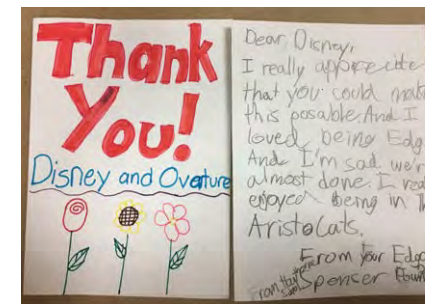 Thank
You!
Disney and Overture
Dear Disney,
I really apprecite
that you could make
this posable. And I
loved being Edg
And I'm sad we'r
almost done. I rea
enjoyed being in th
AristoCats.
From your Edg
Spenser